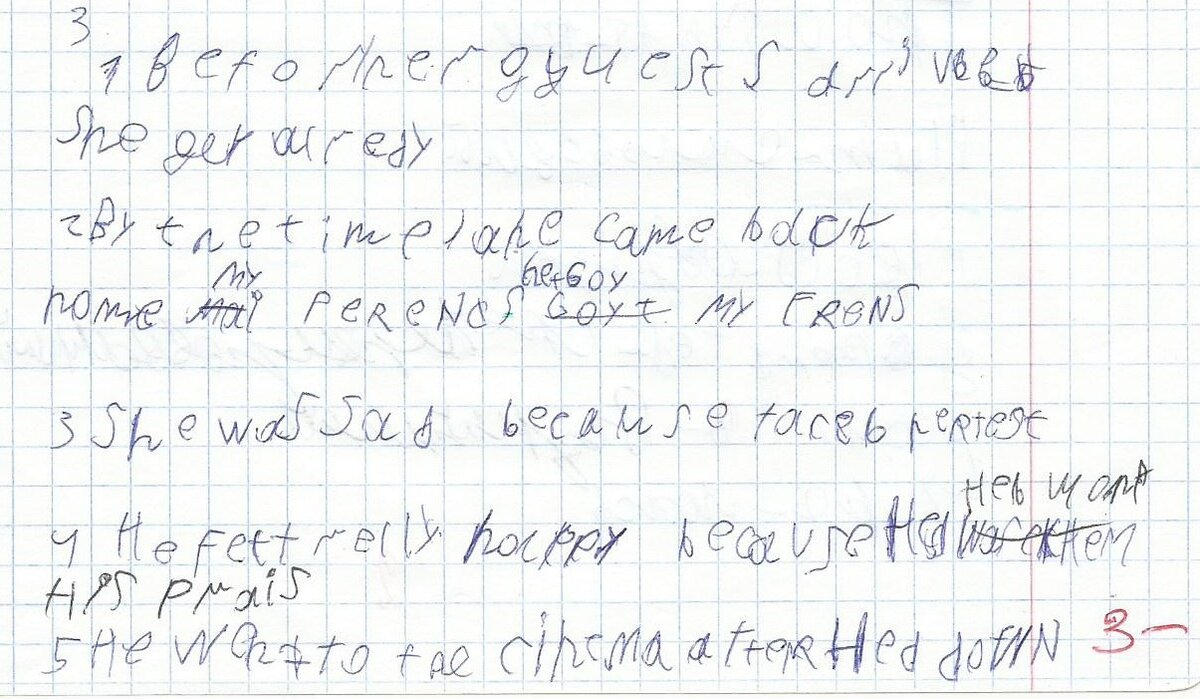 3
1 Befor her gyuests arrived
She get alredy
2 By the time I ahe came back
MY hetGOY
home Mai PERENCS GOYt MY FRENS
3 She was sad because faceb hertest
Heb wont
4 He feet relly happy because Hed Them
HIS Prais
5 He went to the cinema after Hed doNN 3-